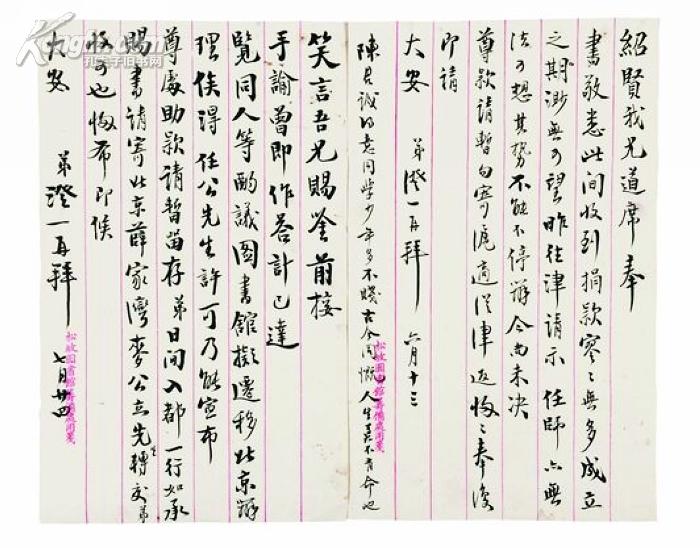 紹賢我兄道席奉
書敬悉此間收到捐款寥々無多成立
之期渺無可望昨往津請示任師六無
法可想其勢不能不停辦今尚未決
尊款請暫勿寄滬適從津返悔々奉復
即請
大安　弟澄一再拜　六月十三
陳君誠的意同學少年多不賤古今同慨人生真不有命也
松坡圖書館籌備處用箋
笑言吾兄賜鑒前接
手諭曾即作荅計已達
覽同人等酌議圖書館擬遷移北京辦
理俟得任公先生許可乃能宣布
尊處助款請暫留存弟日間入都一行如承
賜書請寄北京薛家灣麥公立先生轉交弟
收可也匆布即候
大安　弟澄一再拜　七月廿四
松坡圖書館籌備處用箋
孔夫子旧书网